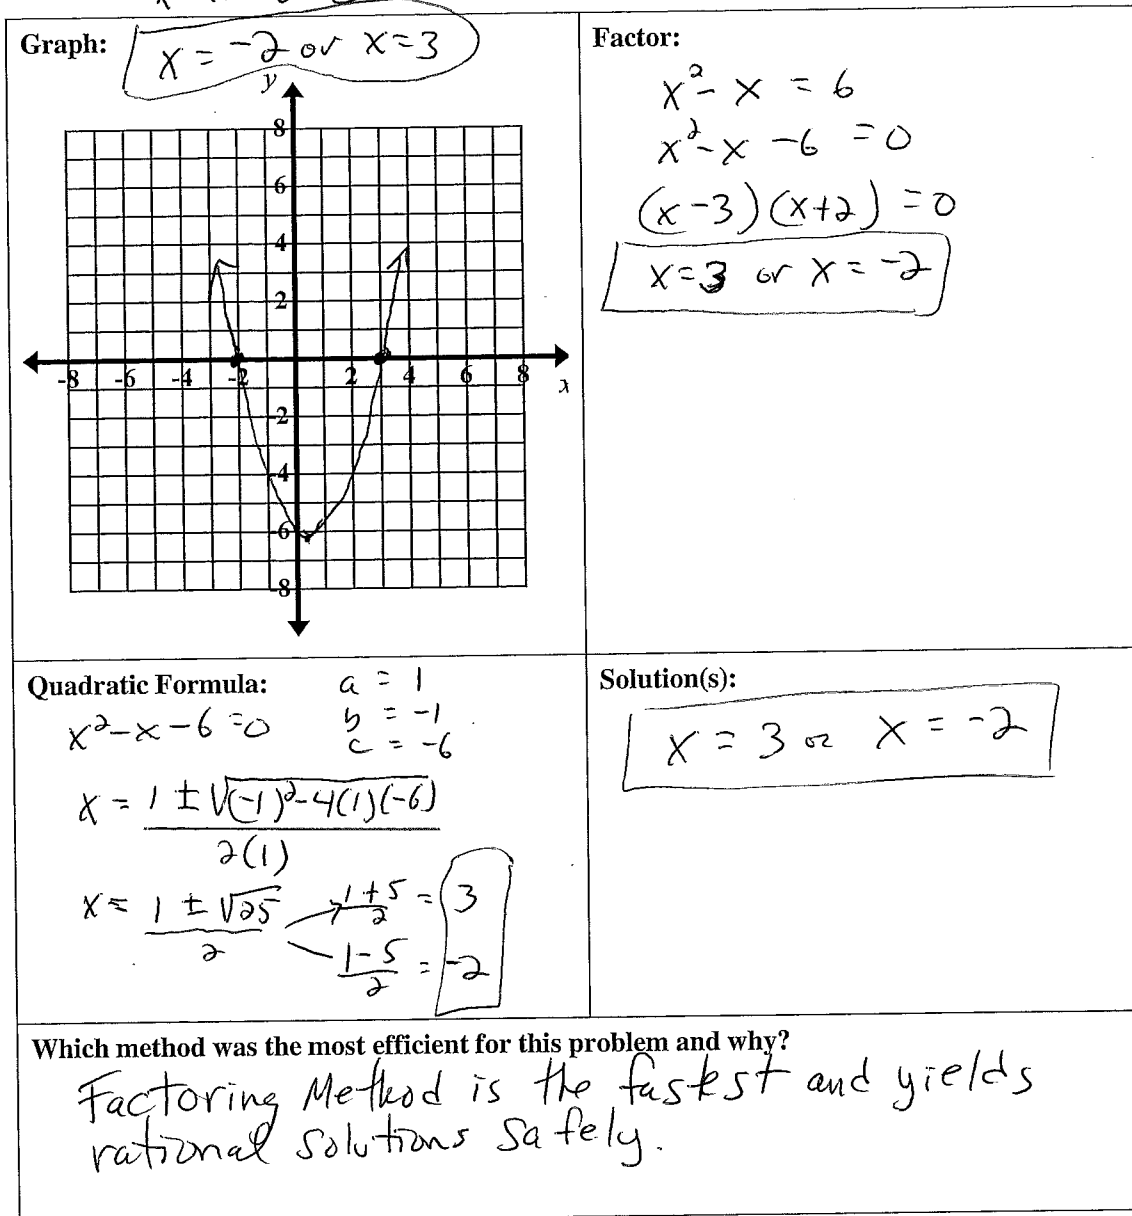 Graph:
x = -2 or x = 3
y
8
6
4
2
-8 -6 -4 -2 2 4 6 8
x
-2
-4
-6
-8
Factor:
x² - x = 6
x² - x - 6 = 0
(x - 3)(x + 2) = 0
x = 3 or x = -2
Quadratic Formula:
a = 1
b = -1
c = -6
x² - x - 6 = 0
x = 1 ± √(-1)² - 4(1)(-6)
2(1)
x = 1 ± √25
2
1 + 5
2
= 3
1 - 5
2
= -2
Solution(s):
x = 3 or x = -2
Which method was the most efficient for this problem and why?
Factoring Method is the fastest and yields
rational solutions safely.